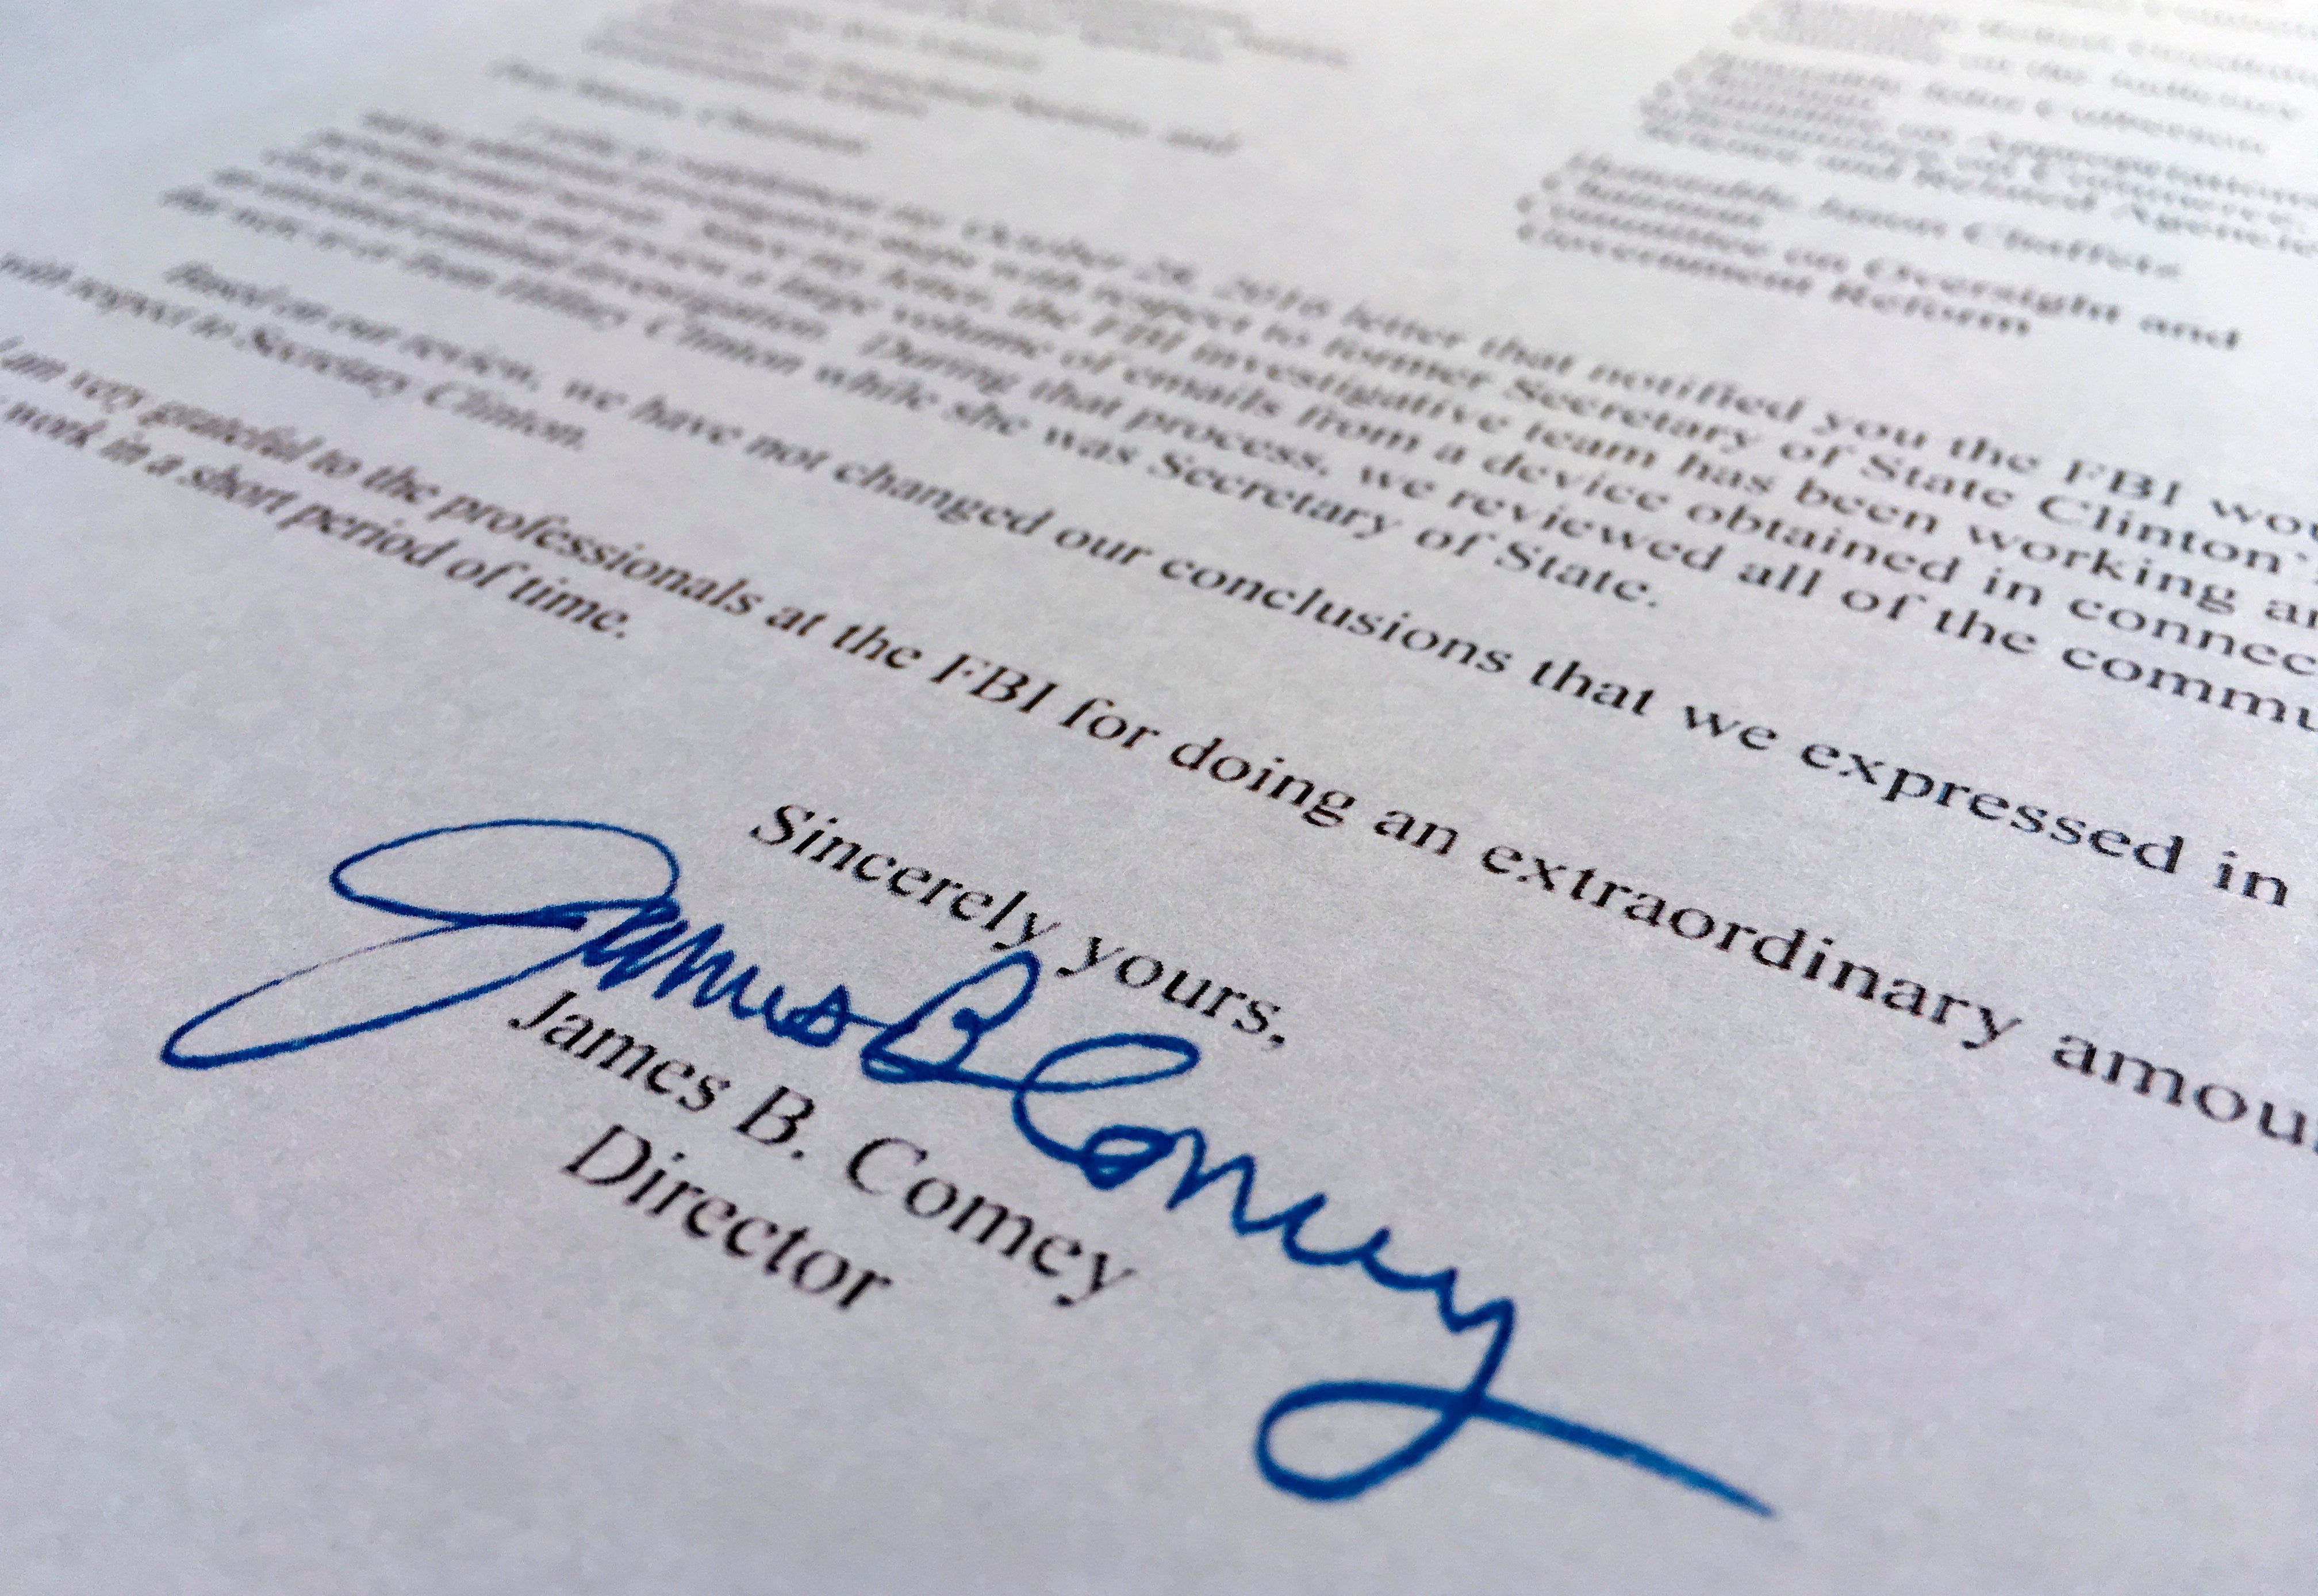 Committee on the Judiciary
Honorable John Culberson
Chairman
Committee on Appropriations
Science and Related Agencies
Honorable Jason Chaffetz
Chairman
Committee on Oversight and
Government Reform
Dear Messrs. Chairmen
I write to supplement my October 28, 2016 letter that notified you the FBI
additional investigative steps with respect to former Secretary of State Clinton's
Since my letter, the FBI investigative team has been working
to process and review a large volume of emails from a device obtained in
investigation. During that process, we reviewed all of the
from Hillary Clinton while she was Secretary of State.
Based on our review, we have not changed our conclusions that we expressed in
with respect to Secretary Clinton.
I am very grateful to the professionals at the FBI for doing an extraordinary
work in a short period of time.
Sincerely yours,
James B Comey
James B. Comey
Director